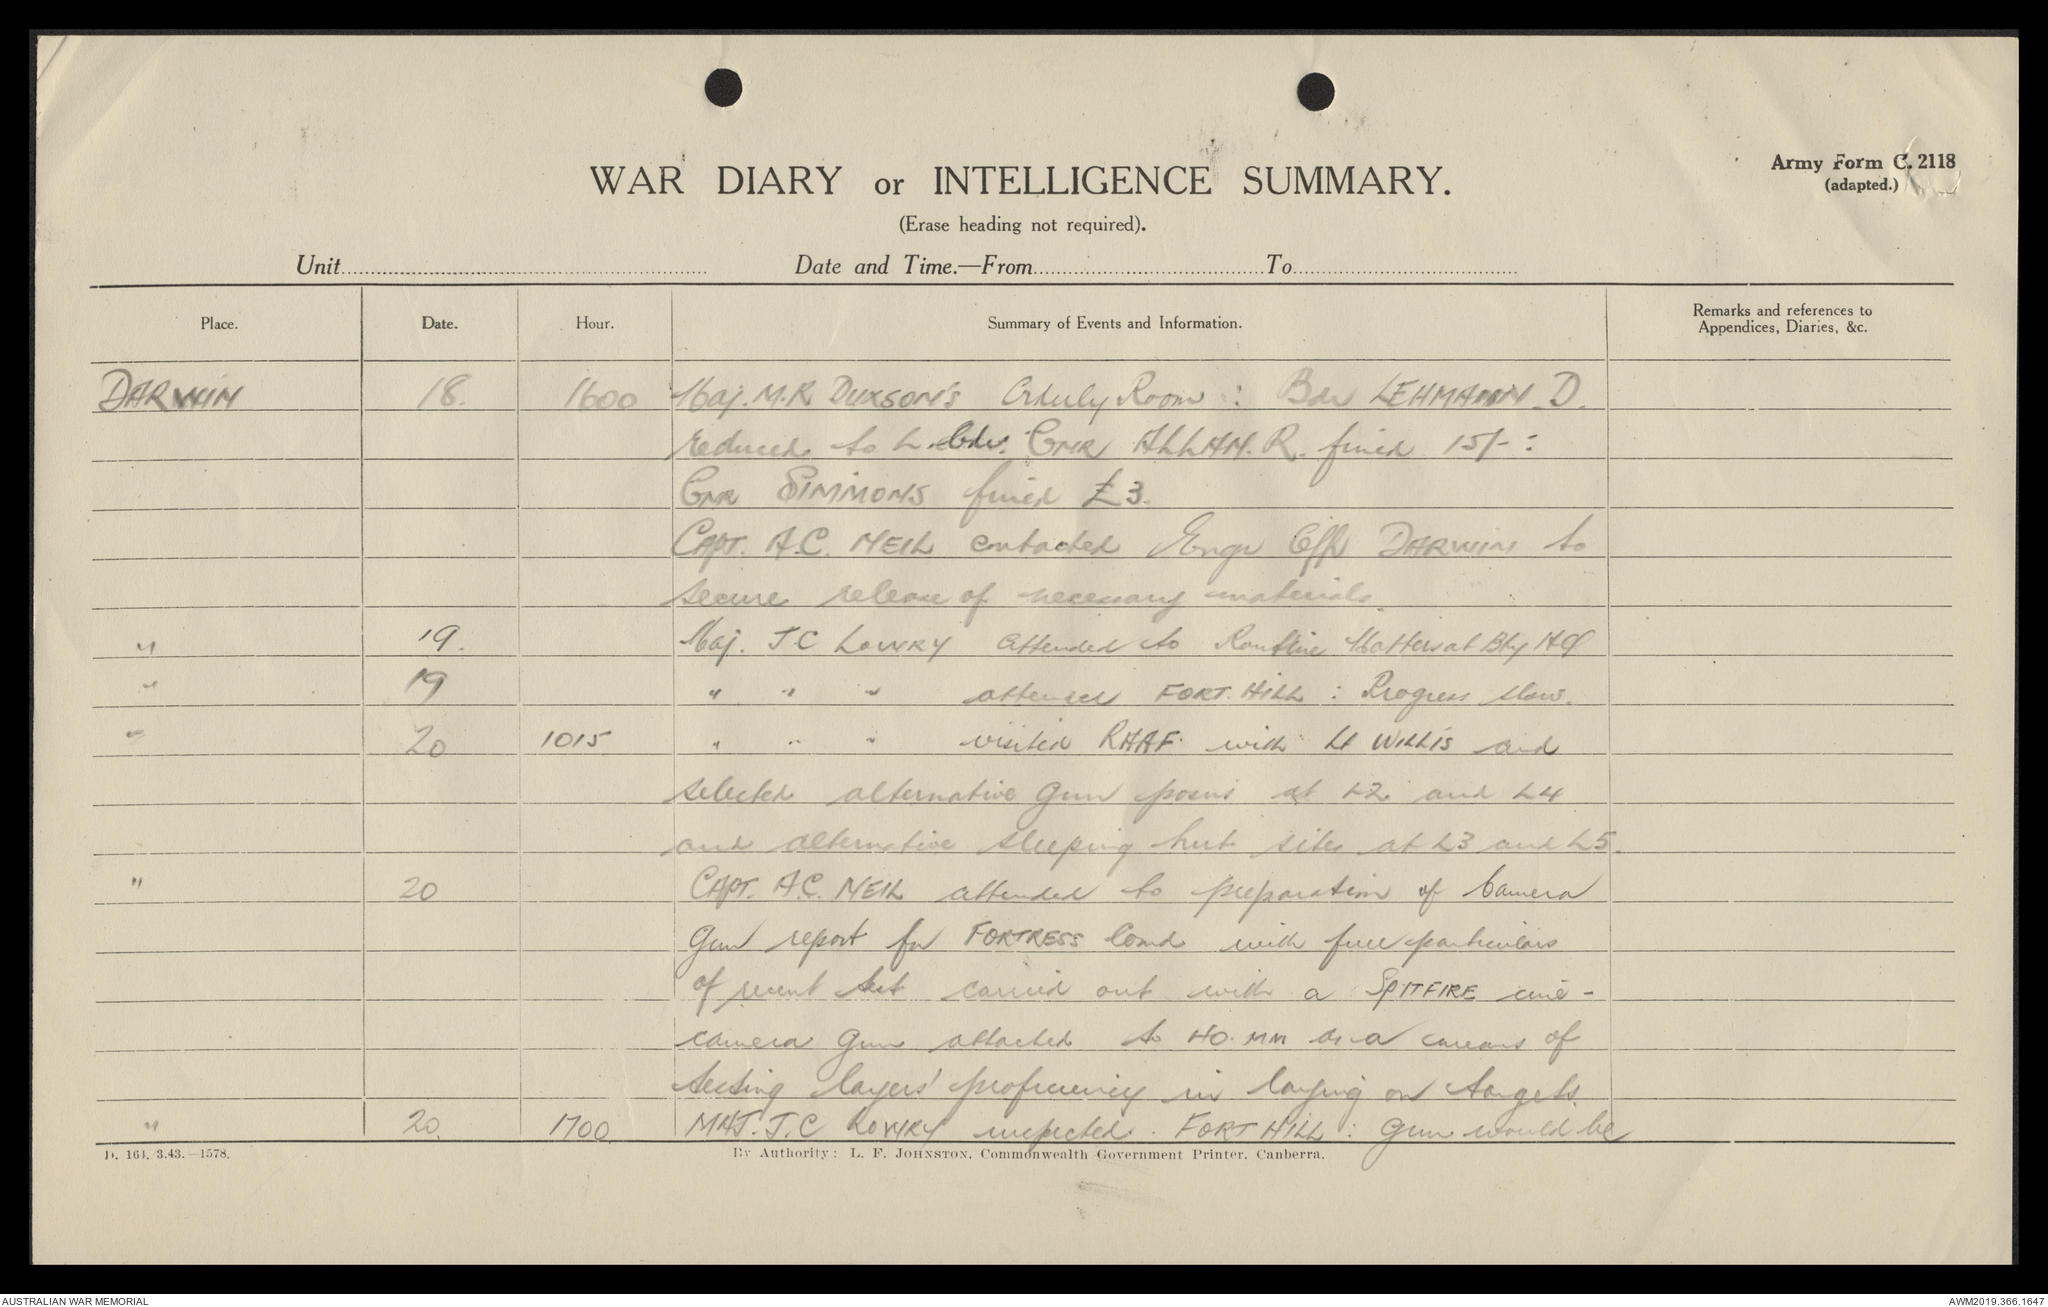 Army Form C. 2118
(adapted.)
WAR DIARY or INTELLIGENCE SUMMARY.
(Erase heading not required).
Unit Date and Time.—From To
Place. Date. Hour. Summary of Events and Information. Remarks and references to Appendices, Diaries, &c.
DARWIN 18. 1600 Maj. M.R DUXSON'S Orderly Room: Bdr LEHMANN. D.
reduced to L. Bdr. GNR ALLAN. R. fined 15/-:
GNR SIMMONS fined £3.
CAPT. A.C. NEIL contacted Engr Offr DARWIN to
secure release of necessary materials.
" 19. Maj. J C LOWRY attended to Routine Matters at Bty HQ
" 19 " " " attended FORT. HILL: Progress slow.
" 20 1015 " " " visited RAAF. with Lt WILLIS and
selected alternative Gun posns at L2 and L4
and alternative sleeping hut sites at L3 and L5.
" 20 CAPT. A.C. NEIL attended to preparation of Camera
Gun report for FORTRESS Comd with full particulars
of recent test carried out with a SPITFIRE cine-
camera Gun attached to 40. MM as a means of
testing layers' proficiency in laying on targets.
" 20. 1700. MAJ. J.C LOWRY inspected. FORT HILL: Gun would be
D. 161. 3.43.—1578.
By Authority: L. F. JOHNSTON, Commonwealth Government Printer, Canberra.
AUSTRALIAN WAR MEMORIAL AWM2019.366.1647